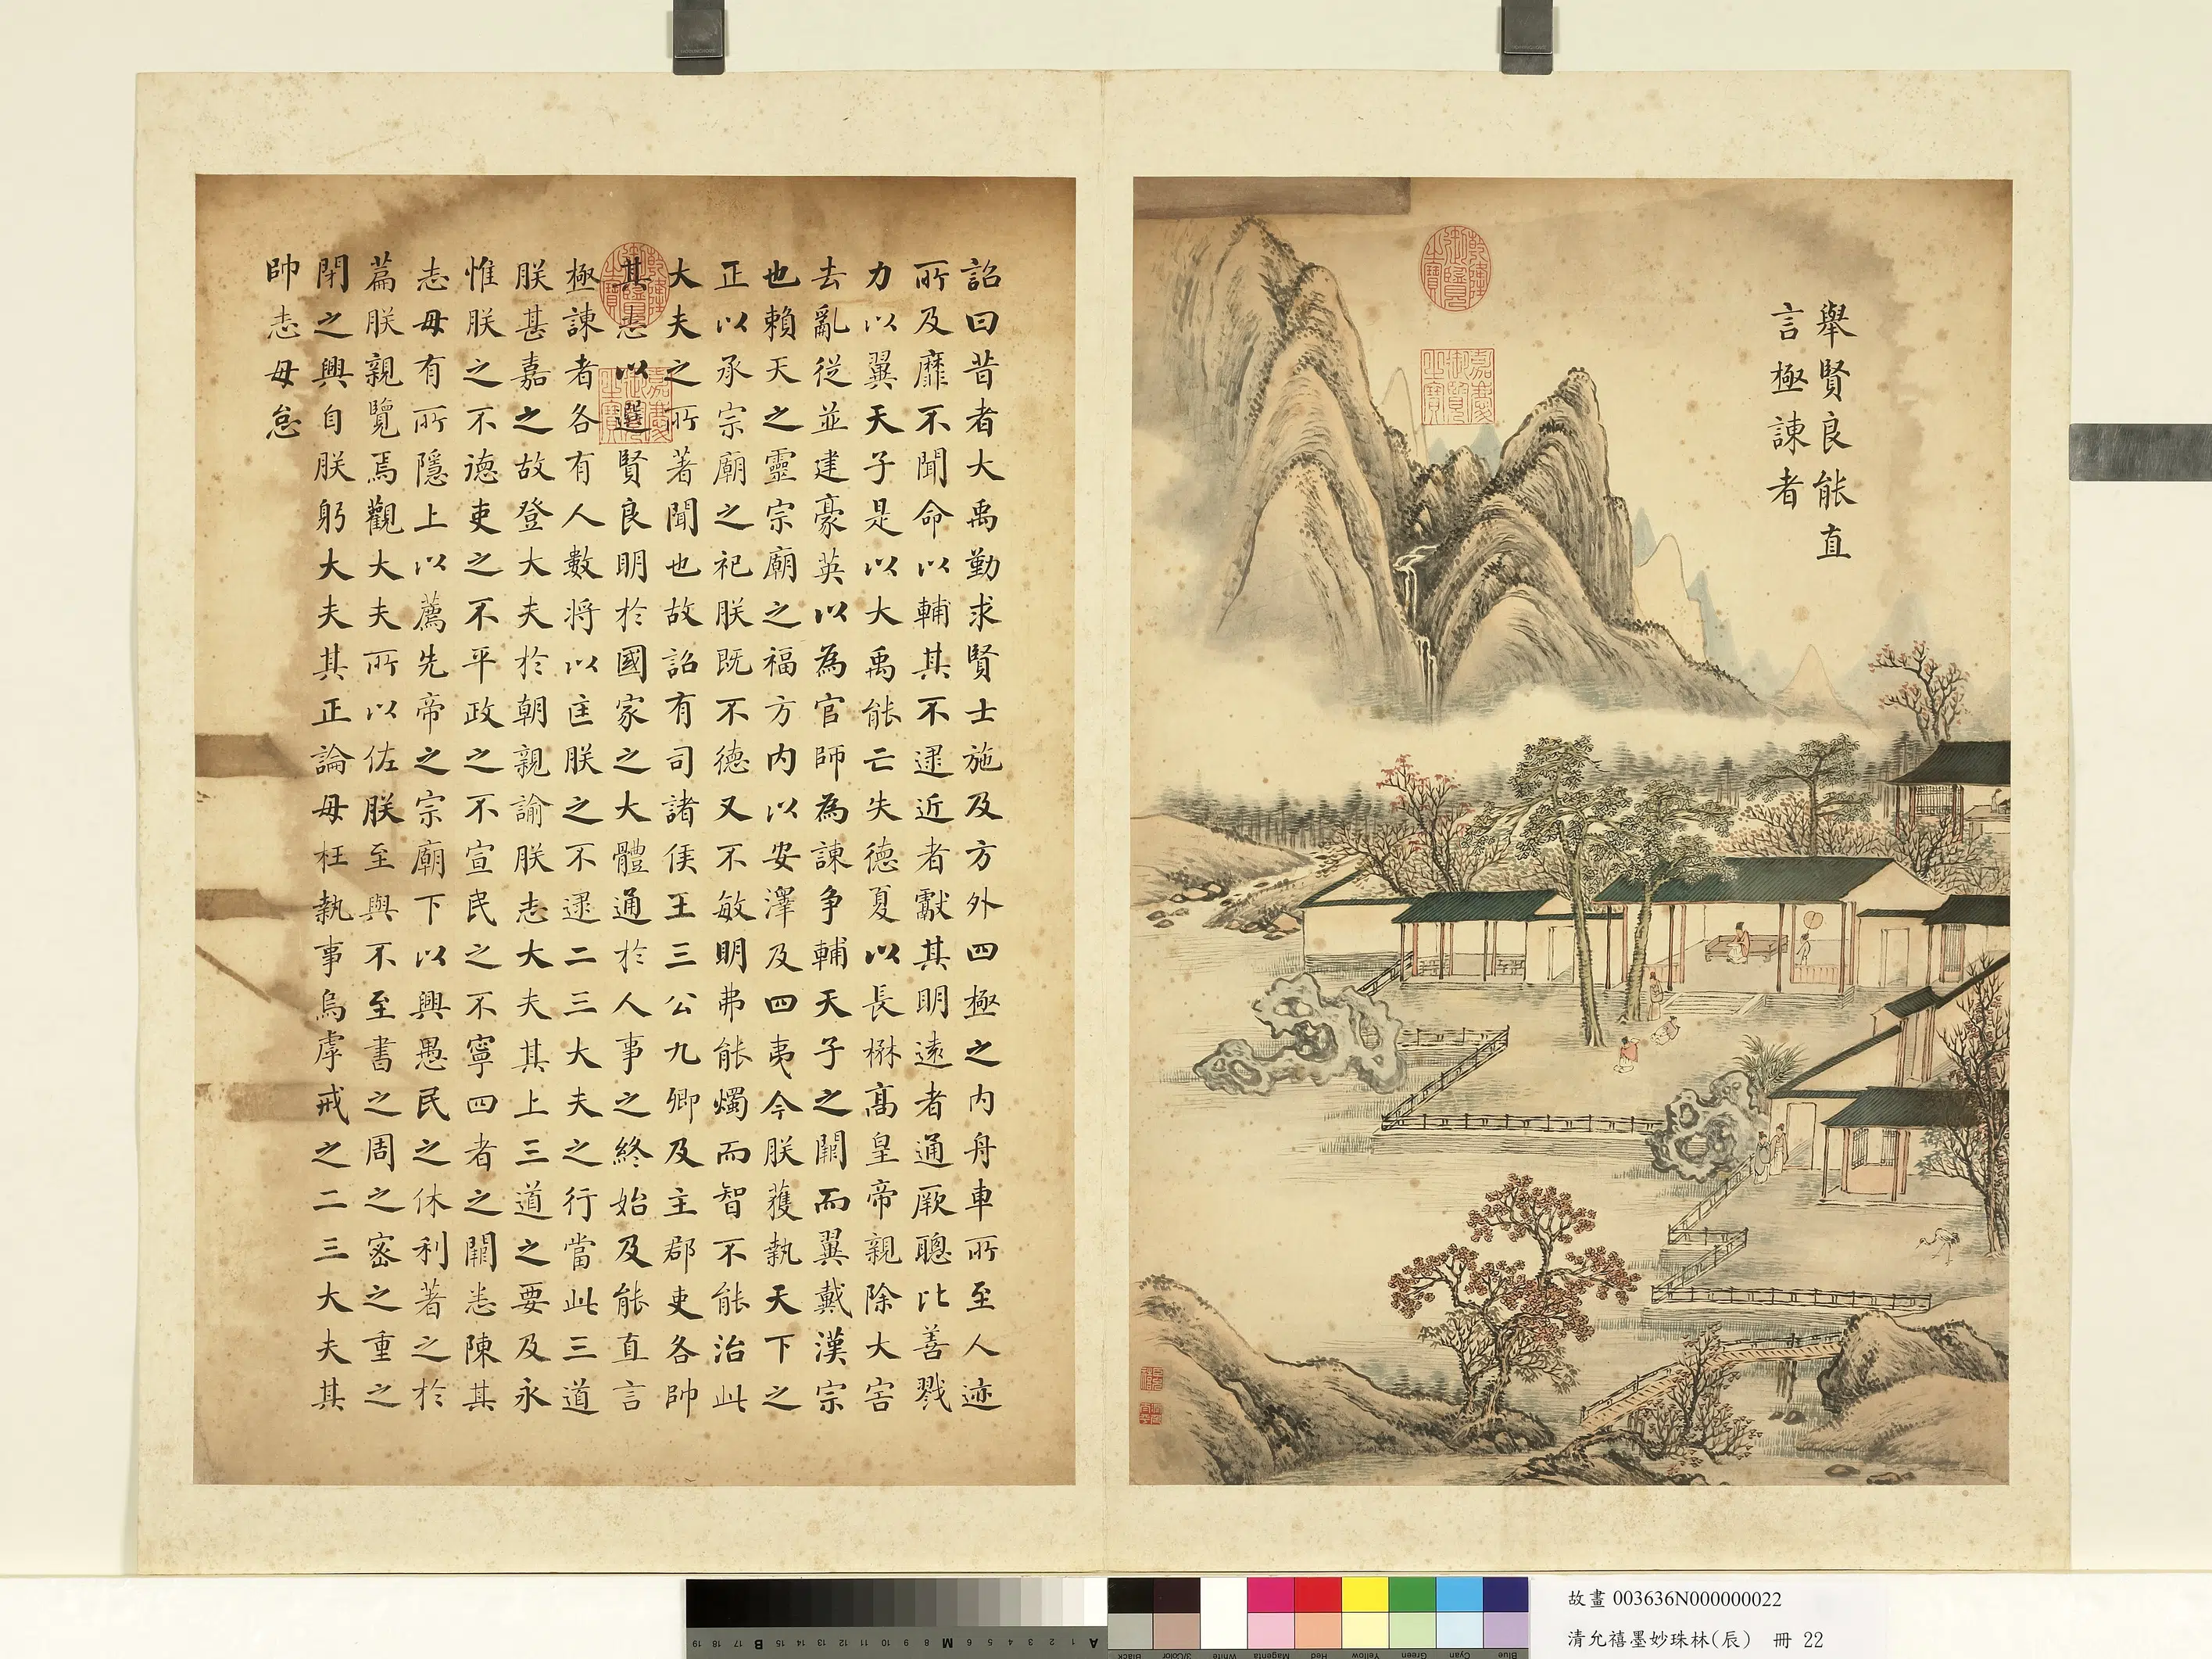 舉賢良能直
言極諫者
乾隆御覽之寶
嘉慶御覽之寶
詔曰昔者大禹勤求賢士施及方外四極之內舟車所至人迹
所及靡不聞命以輔其不逮近者獻其明遠者通厥聰比善戮
力以翼天子是以大禹能亡失德夏以長楙高皇帝親除大害
去亂從並建豪英以為官師為諫爭輔天子之闕而翼戴漢宗
也賴天之靈宗廟之福方內以安澤及四夷今朕獲執天下之
正以承宗廟之祀朕既不德又不敏明弗能燭而智不能治此
大夫之所著聞也故詔有司諸侯王三公九卿及主郡吏各帥
其志以選賢良明於國家之大體通於人事之終始及能直言
極諫者各有人數將以匡朕之不逮二三大夫之行當此三道
朕甚嘉之故登大夫於朝親諭朕志大夫其上三道之要及永
惟朕之不德吏之不平政之不宣民之不寧四者之闕悉陳其
志毋有所隱上以薦先帝之宗廟下以興愚民之休利著之於
篇朕親覽焉觀大夫所以佐朕至與不至書之周之密之重之
閉之興自朕躬大夫其正論毋枉執事烏虖戒之二三大夫其
帥志毋怠
乾隆御覽之寶
嘉慶御覽之寶
故畫 003636N000000022
清允禧墨妙珠林(辰) 冊 22
19 18 17 B 16 15 14 13 12 11 10 9 8 M 7 6 5 4 3 2 1 A
Black 3/Color White Magenta Red Yellow Green Cyan Blue